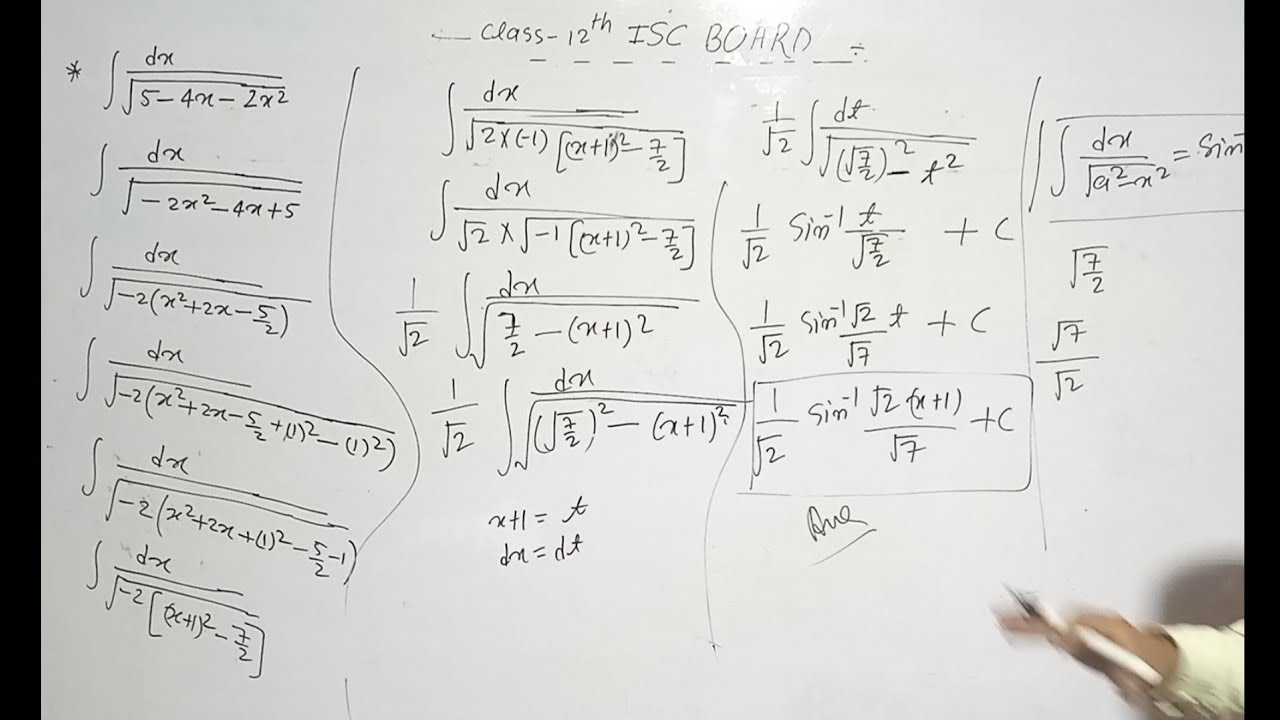 Class-12th ISC BOARD
* ∫ dx / √(5-4x-2x²)
∫ dx / √(-2x²-4x+5)
∫ dx / √(-2(x²+2x-5/2))
∫ dx / √(-2(x²+2x-5/2+(1)²-(1)²))
∫ dx / √(-2(x²+2x+(1)²-5/2-1))
∫ dx / √(-2[(x+1)²-7/2])
∫ dx / √(2×(-1)[(x+1)²-7/2])
∫ dx / √2 × √(-1[(x+1)²-7/2])
1/√2 ∫ dx / √(7/2-(x+1)²)
1/√2 ∫ dx / √((√(7/2))²-(x+1)²)
x+1 = t
dx = dt
1/√2 ∫ dt / √((√(7/2))²-t²)
1/√2 Sin⁻¹ t/√(7/2) + C
1/√2 Sin⁻¹ √2/√7 t + C
1/√2 Sin⁻¹ √2(x+1)/√7 + C
Ans
∫ dx / √(a²-x²) = Sin⁻¹
√(7/2)
√7/√2